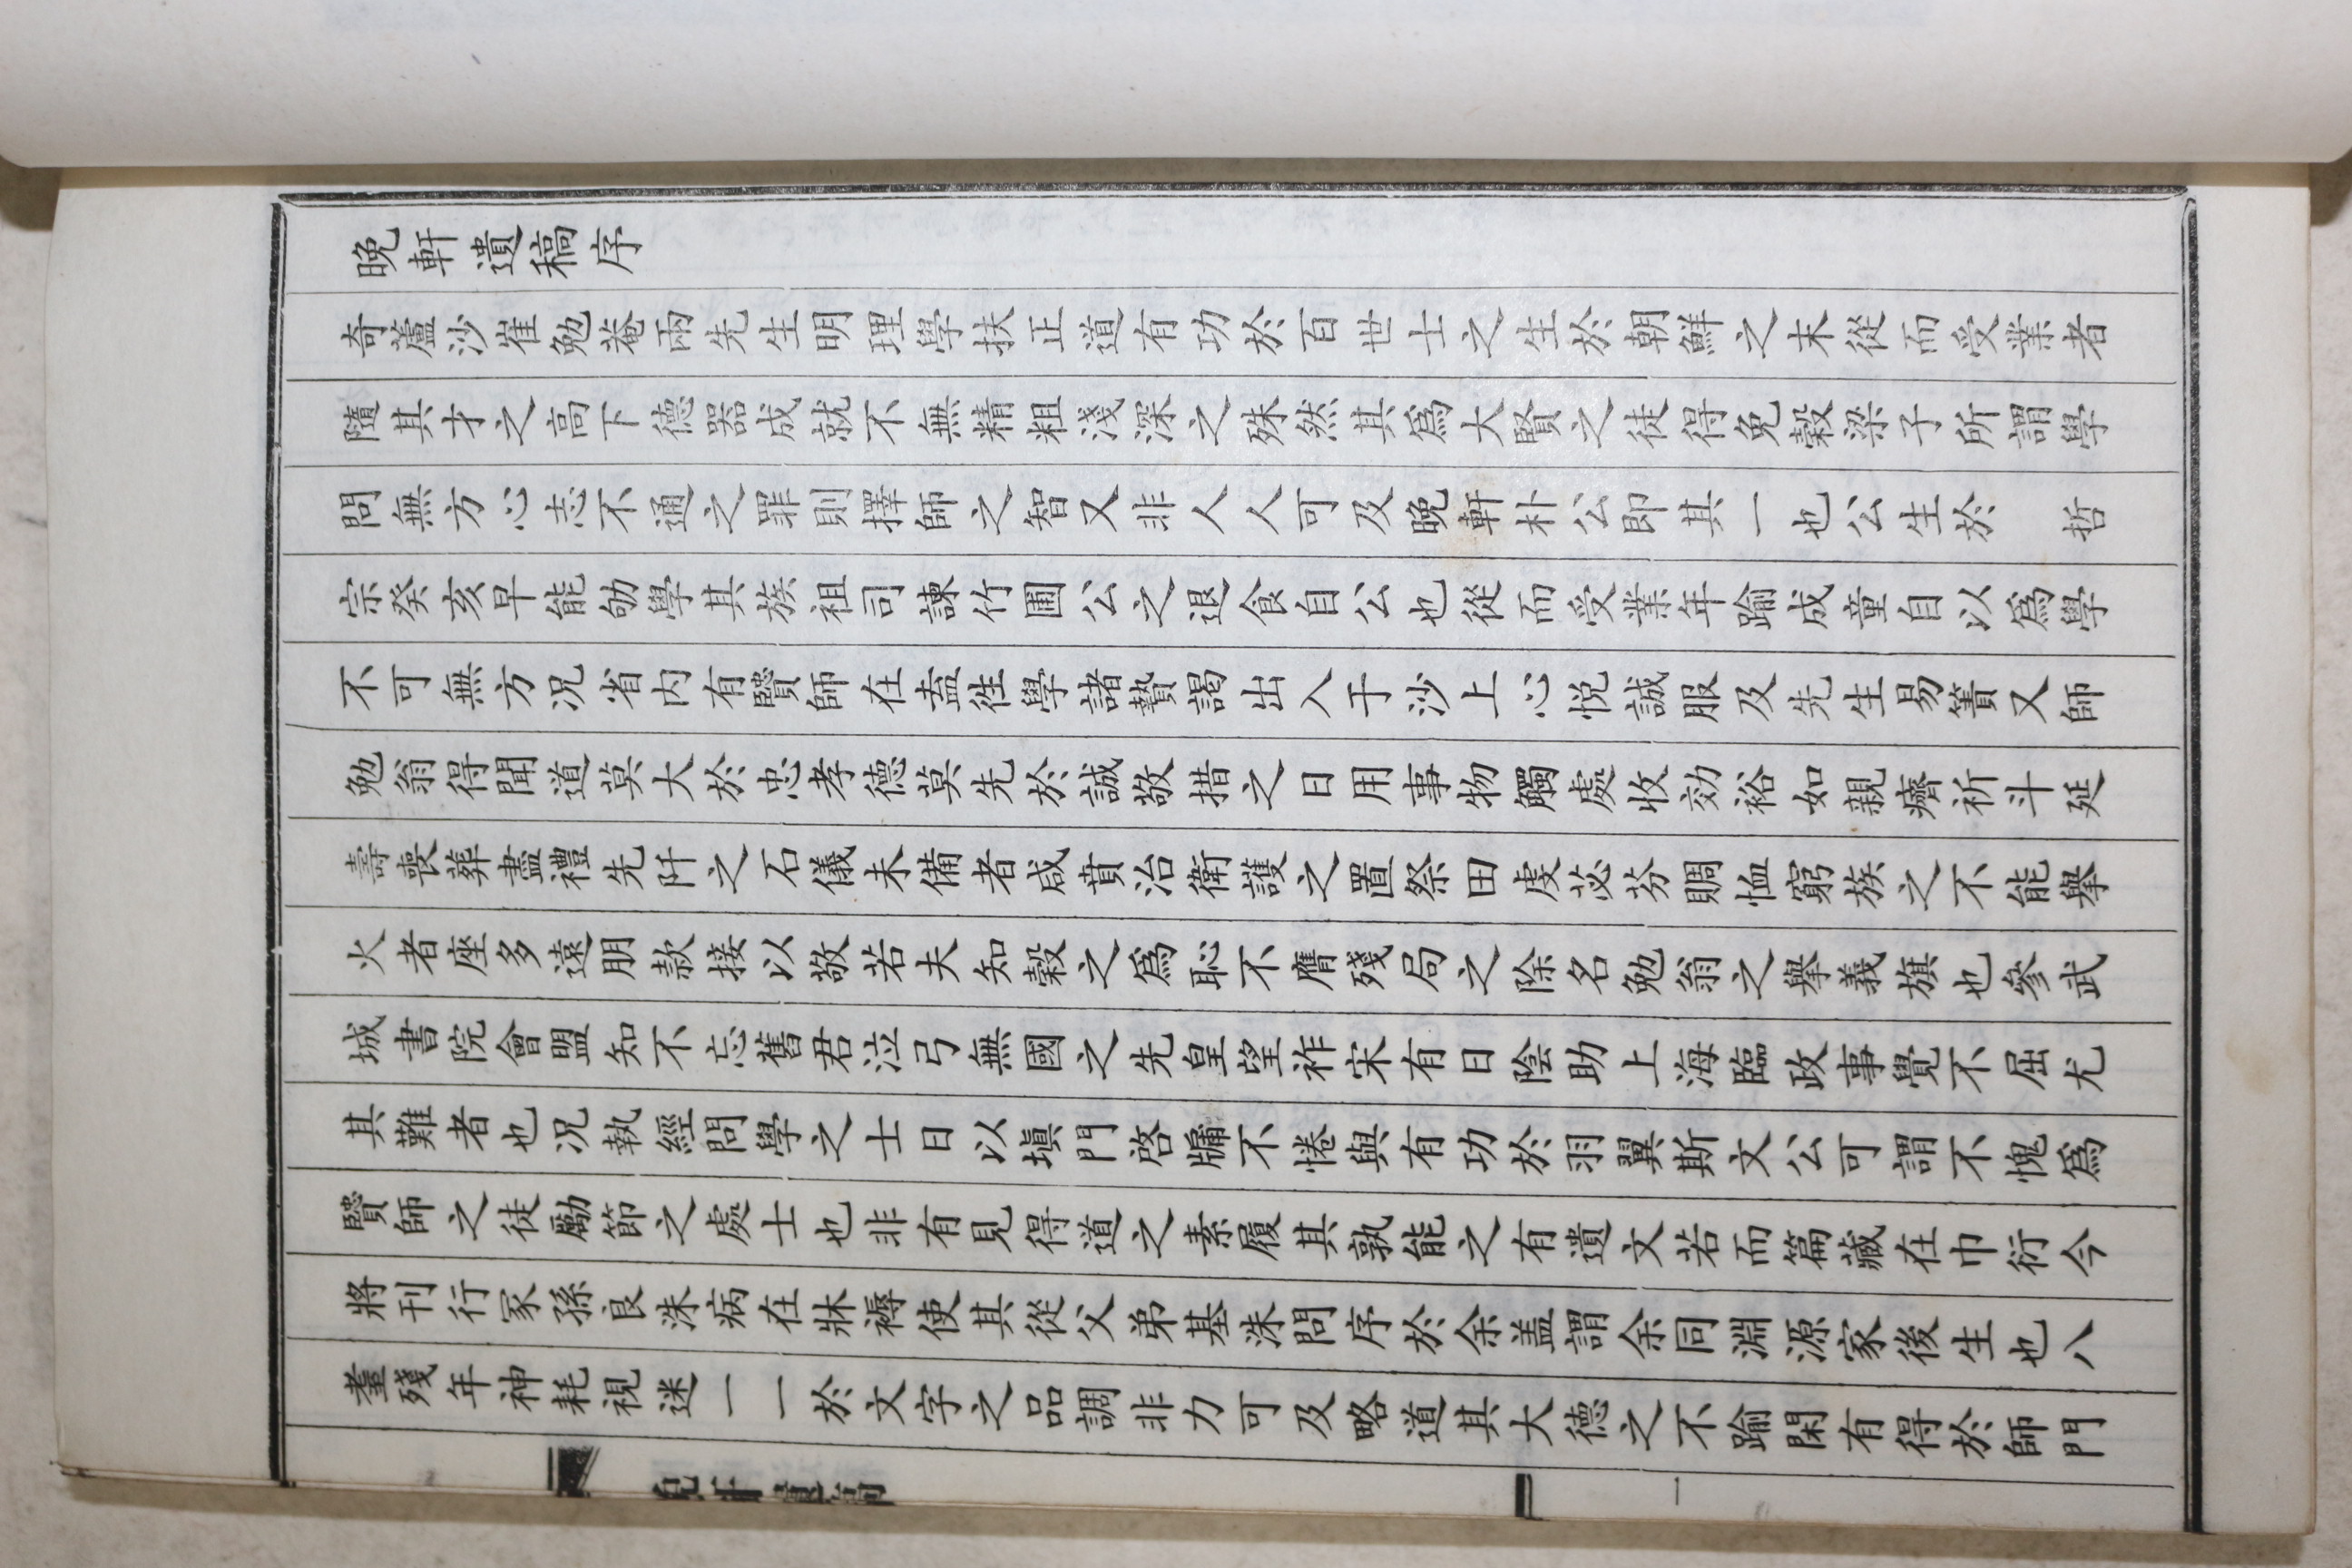 晩軒遺稿序
奇蘆沙崔勉菴兩先生明理學扶正道有功於百世士之生於朝鮮之末從而受業者
隨其才之高下德器成就不無精粗淺深之殊然其爲大賢之徒得免穀梁子所謂學
問無方心志不通之罪則擇師之智又非人人可及晩軒朴公卽其一也公生於 哲
宗癸亥早能劬學其族祖司諫竹圃公之退食自公也從而受業年踰成童自以爲學
不可無方况省内有賢師在盍徃學諸贄謁出入于沙上心悦誠服及先生易簀又師
勉翁得聞道莫大於忠孝德莫先於誠敬措之日用事物觸處收効裕如親癠祈斗延
壽喪葬盡禮先阡之石儀未備者咸賁治衛護之置祭田虔苾芬賙恤窮族之不能擧
火者座多遠朋款接以敬若夫知穀之爲恥不膺殘局之除名勉翁之擧義旗也參武
城書院會盟知不忘舊君泣弓無國之先皇望祚宋有日陰助上海臨政事覺不屈尤
其難者也况執經問學之士日以塡門啓牖不惓與有功於羽翼斯文公可謂不愧爲
賢師之徒勵節之處士也非有見得道之素履其孰能之有遺文若而篇藏在巾衍今
將刊行冢孫良洙病在牀褥使其從父弟基洙問序於余盖謂余同淵源家後生也八
耋殘年神耗視迷一一於文字之品調非力可及略道其大德之不踰閑有得於師門
一